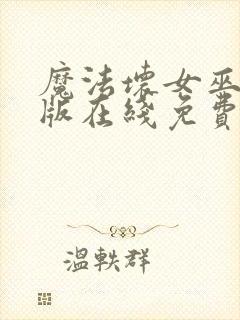 魔法壞女巫
版在綫免費
溫軼群